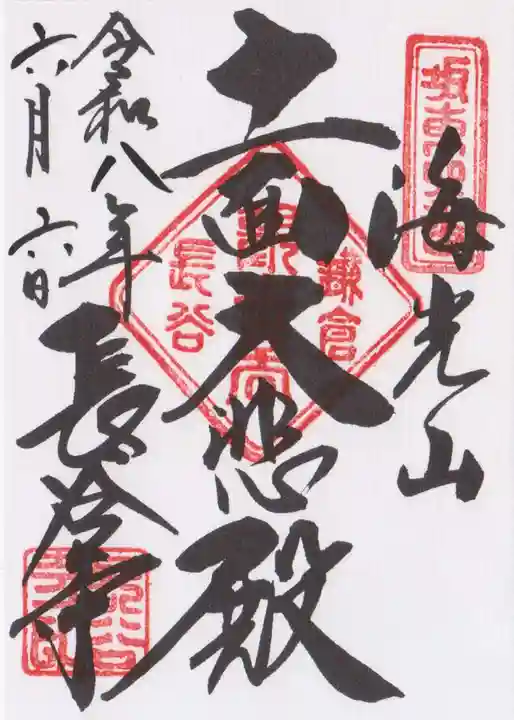 海光山
十一面大悲殿
長谷寺
令和八年
六月六日
鎌倉
長谷